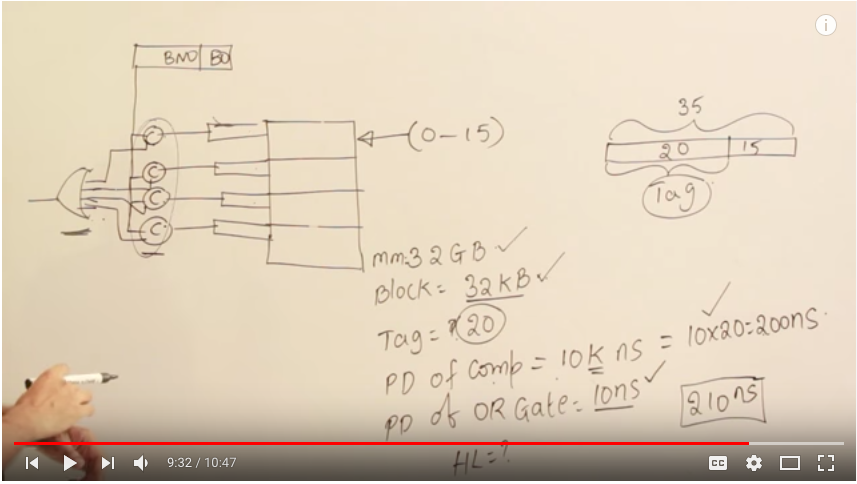 BNO BO
C
C
C
C
(0-15)
35
20 15
Tag
mm=32GB
Block= 32KB
Tag= 20
PD of Comp = 10K ns = 10x20=200ns
PD of OR Gate= 10ns
210ns
HL=?
9:32 / 10:47
CC
i